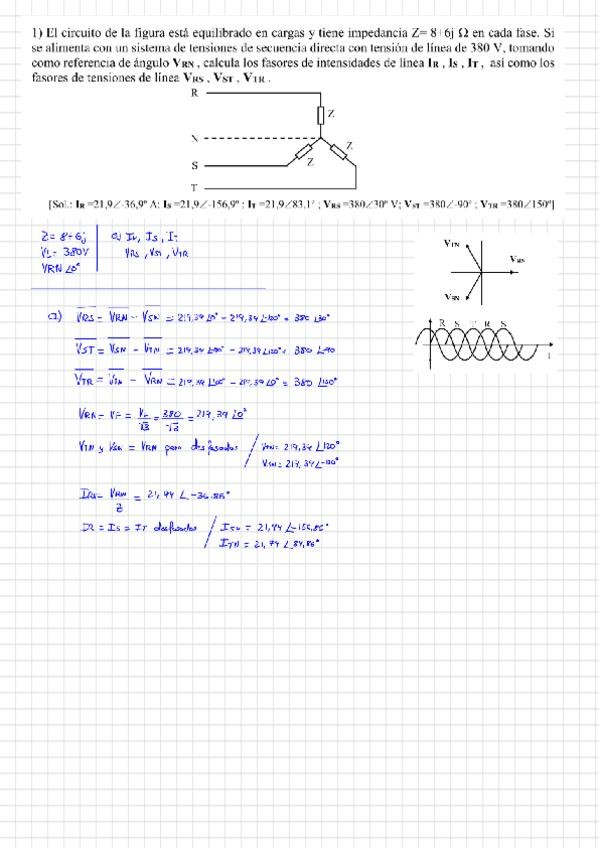 1) El circuito de la figura está equilibrado en cargas y tiene impedancia Z= 8+6j Ω en cada fase. Si
se alimenta con un sistema de tensiones de secuencia directa con tensión de línea de 380 V, tomando
como referencia de ángulo VRN , calcula los fasores de intensidades de línea IR , IS , IT , así como los
fasores de tensiones de línea VRS , VST , VTR .
R
Z
N
Z
S
Z
T
[Sol.: IR =21,9∠-36,9º A; IS =21,9∠-156,9º ; IT =21,9∠83,1º ; VRS =380∠30º V; VST =380∠-90º ; VTR =380∠150º]
Z= 8+6j
VL= 380V
VRN ∠0°
a) IR, IS, IT
VRS, VST, VTR
VTN
VRN
VSN
R S T R S
t
a) VRS = VRN - VSN = 219,39 ∠0° - 219,39 ∠-120° = 380 ∠30°
VST = VSN - VTN = 380 ∠-90
VTR = VTN - VRN = 380 ∠150°
VRN = VF = VL/√3 = 380/√3 = 219,39 ∠0°
VTN y VSN = VRN pero desfasados / VTN= 219,39 ∠120°
VSN= 219,39 ∠-120°
VRN/Z = 21,94 ∠-36.86°
IR = IS = IT desfasados